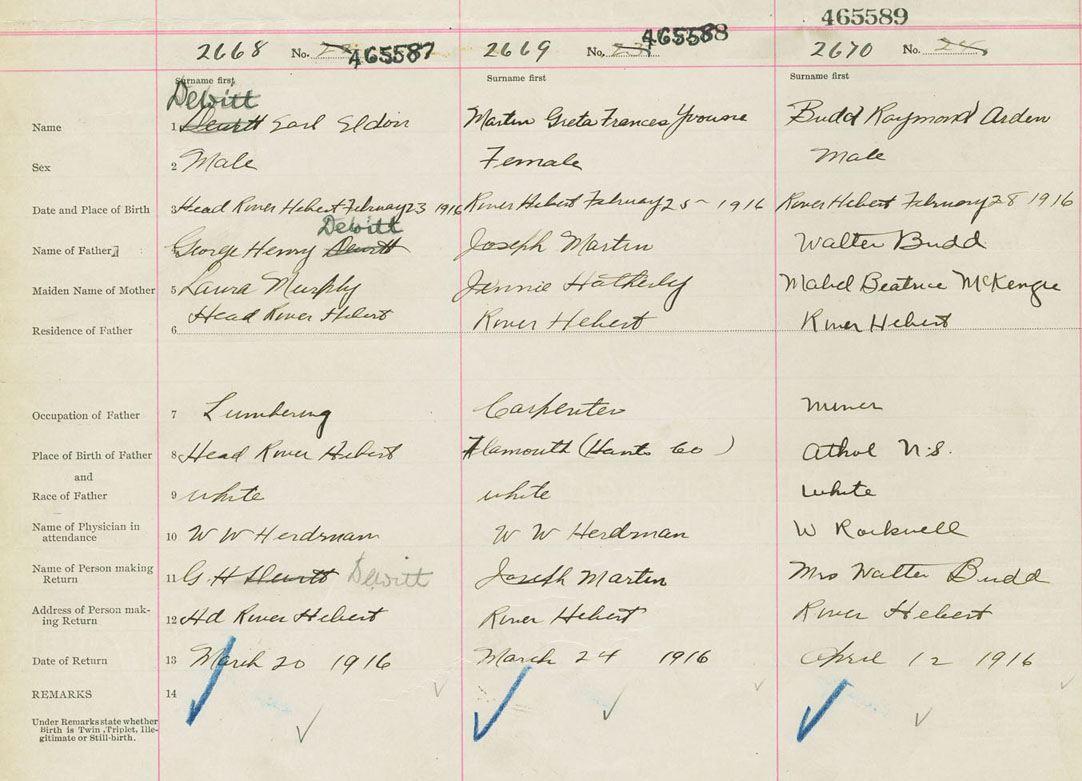 465589
2668 No. 465587 2669 No. 465588 2670 No. 24
Surname first Surname first Surname first
Dewitt
Name 1 Dewitt Earl Eldon Martin Greta Frances Yvonne Budd Raymond Arden
Sex 2 Male Female Male
Date and Place of Birth 3 Head River Hebert February 23 1916 River Hebert February 25 - 1916 River Hebert February 28 1916
Dewitt
Name of Father 4 George Henry Dewitt Joseph Martin Walter Budd
Maiden Name of Mother 5 Laura Murphy Jennie Hatherly Mabel Beatrice McKenzie
Residence of Father 6 Head River Hebert River Hebert River Hebert
Occupation of Father 7 Lumbering Carpenter Miner
Place of Birth of Father 8 Head River Hebert (Hants Co) Athol N.S.
and
Race of Father 9 white white white
Name of Physician in
attendance 10 W W Herdman W W Herdman W Rockwell
Name of Person making
Return 11 G H Dewitt Joseph Martin Mrs Walter Budd
Address of Person mak-
ing Return 12 Hd River Hebert River Hebert River Hebert
Date of Return 13 March 20 1916 March 24 1916 April 12 1916
REMARKS 14
Under Remarks state whether
Birth is Twin, Triplet, Ille-
gitimate or Still-birth.